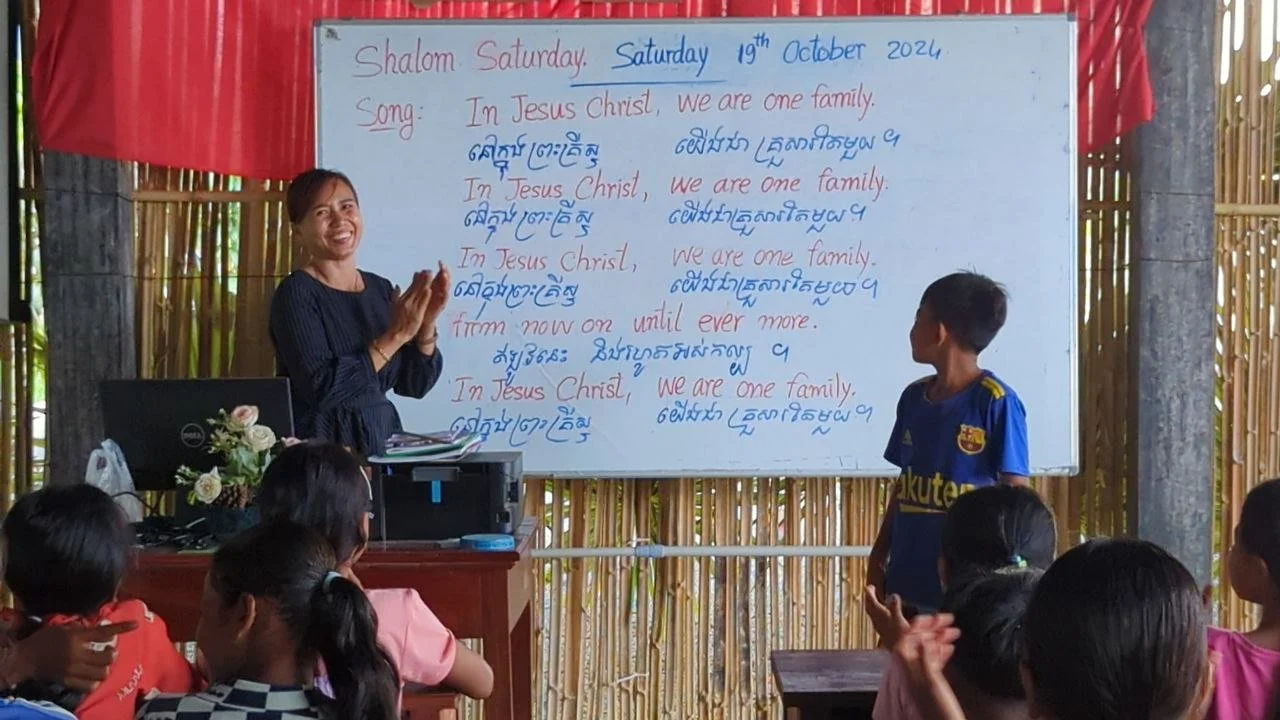 Shalom Saturday. Saturday 19th October 2024
Song: In Jesus Christ, we are one family.
នៅក្នុងព្រះគ្រីស្ទ យើងជាគ្រួសារតែមួយ ។
In Jesus Christ, we are one family.
នៅក្នុងព្រះគ្រីស្ទ យើងជាគ្រួសារតែមួយ ។
In Jesus Christ, we are one family.
នៅក្នុងព្រះគ្រីស្ទ យើងជាគ្រួសារតែមួយ ។
from now on until ever more.
ឥឡូវនេះ និងរហូតអស់កល្ប ។
In Jesus Christ, we are one family.
នៅក្នុងព្រះគ្រីស្ទ យើងជាគ្រួសារតែមួយ ។
DELL
akuten